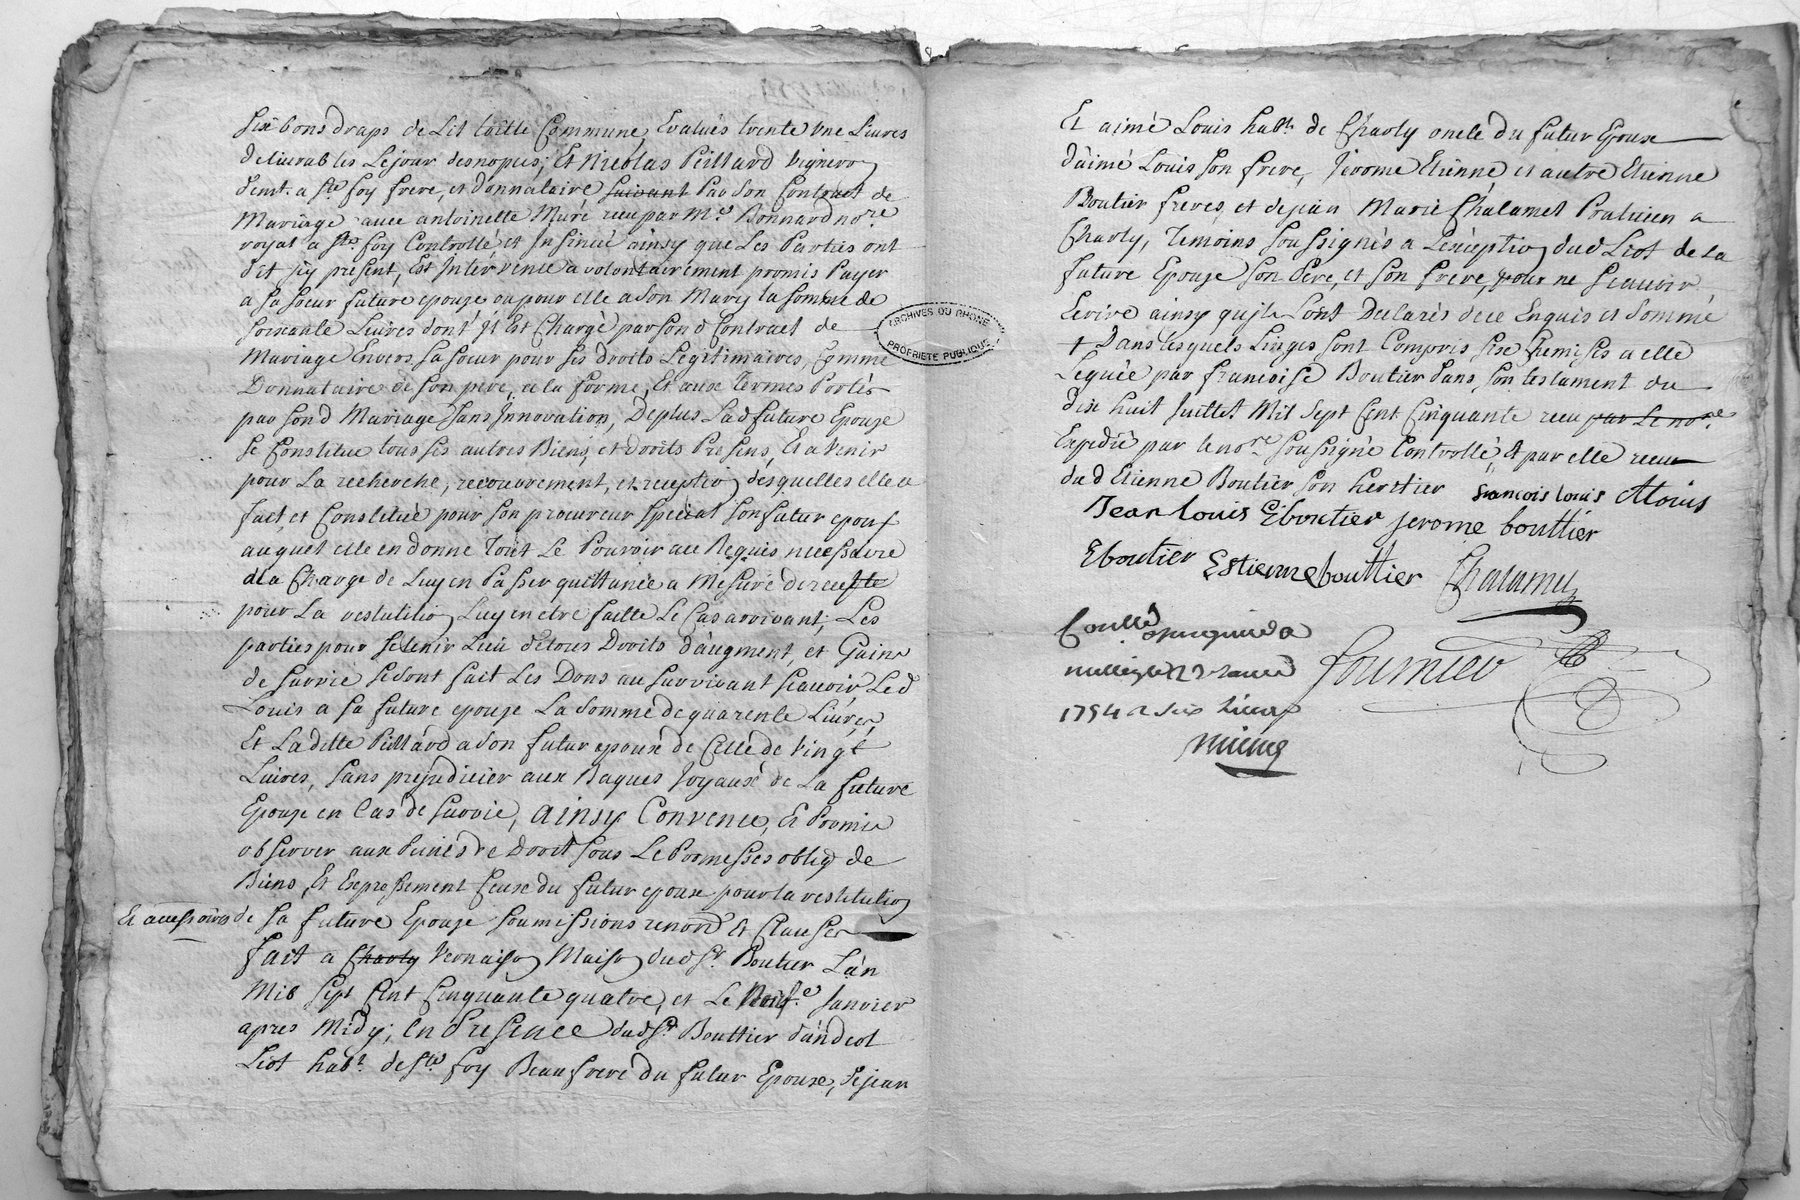 Six bons draps de Lit toille Commune, Evalués trente une Livres
delivrables Le jour des nopces; Et Nicolas Peillard Vigneron
demt. a Ste foy frere, et donnataire suivant Par Son Contract de
Mariage avec antoinette Muré receu par Me Bonnard nore
royal a Ste foy Controllé et Insinué ainsy que Les Parties ont
dit jcy present, Est Intervenu a volontairement promis Payer
a Sa Soeur future epouse ou pour elle a Son Mary la Somme de
Soixante Livres dont jl Est Chargé par Sond Contract de
Mariage Envers Sa Soeur pour Ses droits Legitimaires, Comme
Donnataire de Son pere, a la forme, Et aux Termes Portés
par Sond Mariage Sans Innovation, De plus Lad future Epouse
Se Constitue tous Ses autres Biens, et Droits Presens, Et a Venir
pour La recherche, recouvrement, et reception desquelles elle a
fait, et Constitué pour Son procureur Special Son futur epoux
auquel elle en donne Tout Le Pouvoir au Requis necessaire
a la Charge de Luy en Passer quittance a Mesure de
pour La restitution Luy en etre faitte Le Cas arrivant; Les
parties pour Se tenir Lieu de tous Droits d'augment, et Gains
de Survie Se Sont fait Les Dons au Survivant Scavoir Led
Louis a Sa future epouse La Somme de quarente Livres,
Et Laditte Peillard a Son futur epoux de Celle de Vingt
Livres, Sans prejudicier aux Bagues Joyaux de La future
Epouse en Cas de Survie, ainsy Convenu, Et Promis
observer aux Peines de Droit Sous Le Promesses oblig de
Biens, Et Expressement Ceux du futur epoux pour la restitution
Et accessoires de Sa future Epouse Soumissions renon Et Clauses
fait a Charly Vernaison Maison dud Sr. Boutier L'an
Mil Sept Cent Cinquante quatre, et Le Janvier
apres Midy; En Presence dud Sr. Bouttier d'andeol
Liot habt. de Ste foy Beaufrere du futur Epoux, de jean
Et aimé Louis habts. de Charly oncle du futur Epoux
d'aimé Louis Son frere, Jerome Etienne et autre Etienne
Boutier freres, et de jean Marie Chalamel Praticien a
Charly, Temoins Soussignés a L'exception dud Liot de La
future Epouse Son Pere, et Son frere, pour ne Scavoir
Ecrire ainsy qu'ils Sont Declarés de ce Enquis et Sommé
+ Dans lesquels Linges Sont Compris Six Chemises a elle
Leguée par francoise Boutier dans Son testament du
dix huit Juillet Mil Sept Cent Cinquante receu par Le nore.
Expedié par le nore. Soussigné Controllé, Et par elle receu
dud Etienne Boutier Son heritier francois Louis ALouis
Jean Louis Eboutier jerome bouttier
Eboutier Estienne bouttier Chalamel
Conllé
Fournier
1754 a Six Livres